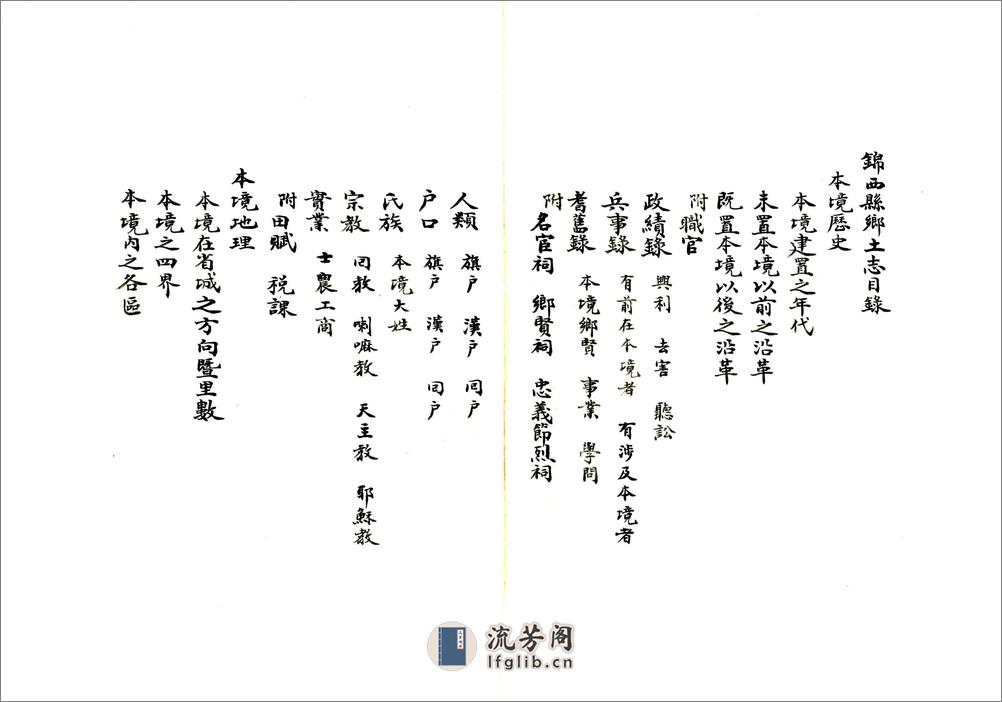 錦西縣鄉土志目錄
本境歷史
本境建置之年代
未置本境以前之沿革
既置本境以後之沿革
附職官
政績錄 興利 去害 聽訟
兵事錄 有前在本境者 有涉及本境者
耆舊錄 本境鄉賢 事業 學問
附名宦祠 鄉賢祠 忠義節烈祠
人類 旗戶 漢戶 回戶
戶口 旗戶 漢戶 回戶
氏族 本境大姓
宗教 回教 喇嘛教 天主教 耶穌教
實業 士農工商
附田賦 稅課
本境地理
本境在省城之方向暨里數
本境之四界
本境內之各區
流芳阁
lfglib.cn